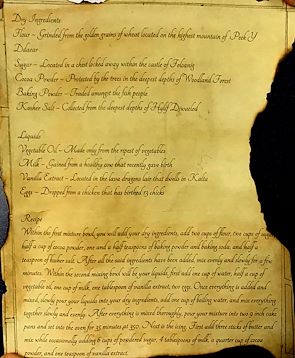 Dry Ingredients
Flour - Grinded from the golden grains of wheat located on the highest mountain of Peek Y
Sugar - Located in a chest locked away within the castle of
Cocoa Powder - Protected by the trees in the deepest depths of Woodland Forest
Baking Powder - Traded amongst the fish people
Kosher Salt - Collected from the deepest depths of
Liquids
Vegetable Oil - Made only from the ripest of vegetables
Milk - Gained from a healthy cow that recently gave birth
Vanilla Extract - Located in the lava dragons lair that dwells in
Eggs - Dropped from a chicken that has birthed 13 chicks
Recipe
Within the first mixture bowl, you will add your dry ingredients, add two cups of flour, two cups of sugar,
half a cup of cocoa powder, one and a half teaspoons of baking powder and baking soda, and half a
teaspoon of kosher salt. After all the said ingredients have been added, mix evenly and slowly for a few
minutes. Within the second mixing bowl will be your liquids, first add one cup of water, half a cup of
vegetable oil, one cup of milk, one tablespoon of vanilla extract, two eggs. Once everything is added and
mixed, slowly pour your liquids into your dry ingredients, add one cup of boiling water, and mix everything
together slowly and evenly. After everything is mixed thoroughly, pour your mixture into two 9 inch cake
pans and set into the oven for 35 minutes at 350. Next is the icing. First add three sticks of butter and
mix while occasionally adding 6 cups of powdered sugar, 4 tablespoons of milk, a quarter cup of cocoa
powder, and one teaspoon of vanilla extract.